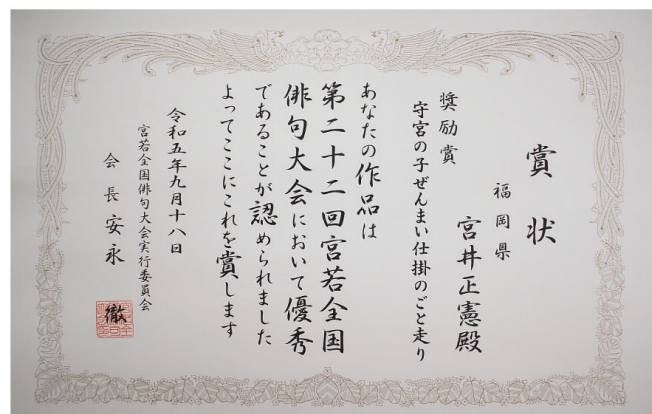 賞状
福岡県
宮井正憲殿
奨励賞
守宮の子ぜんまい仕掛のごと走り
あなたの作品は
第二十二回宮若全国
俳句大会において優秀
であることが認められました
よってここにこれを賞します
令和五年九月十八日
宮若全国俳句大会実行委員会
会長安永徹